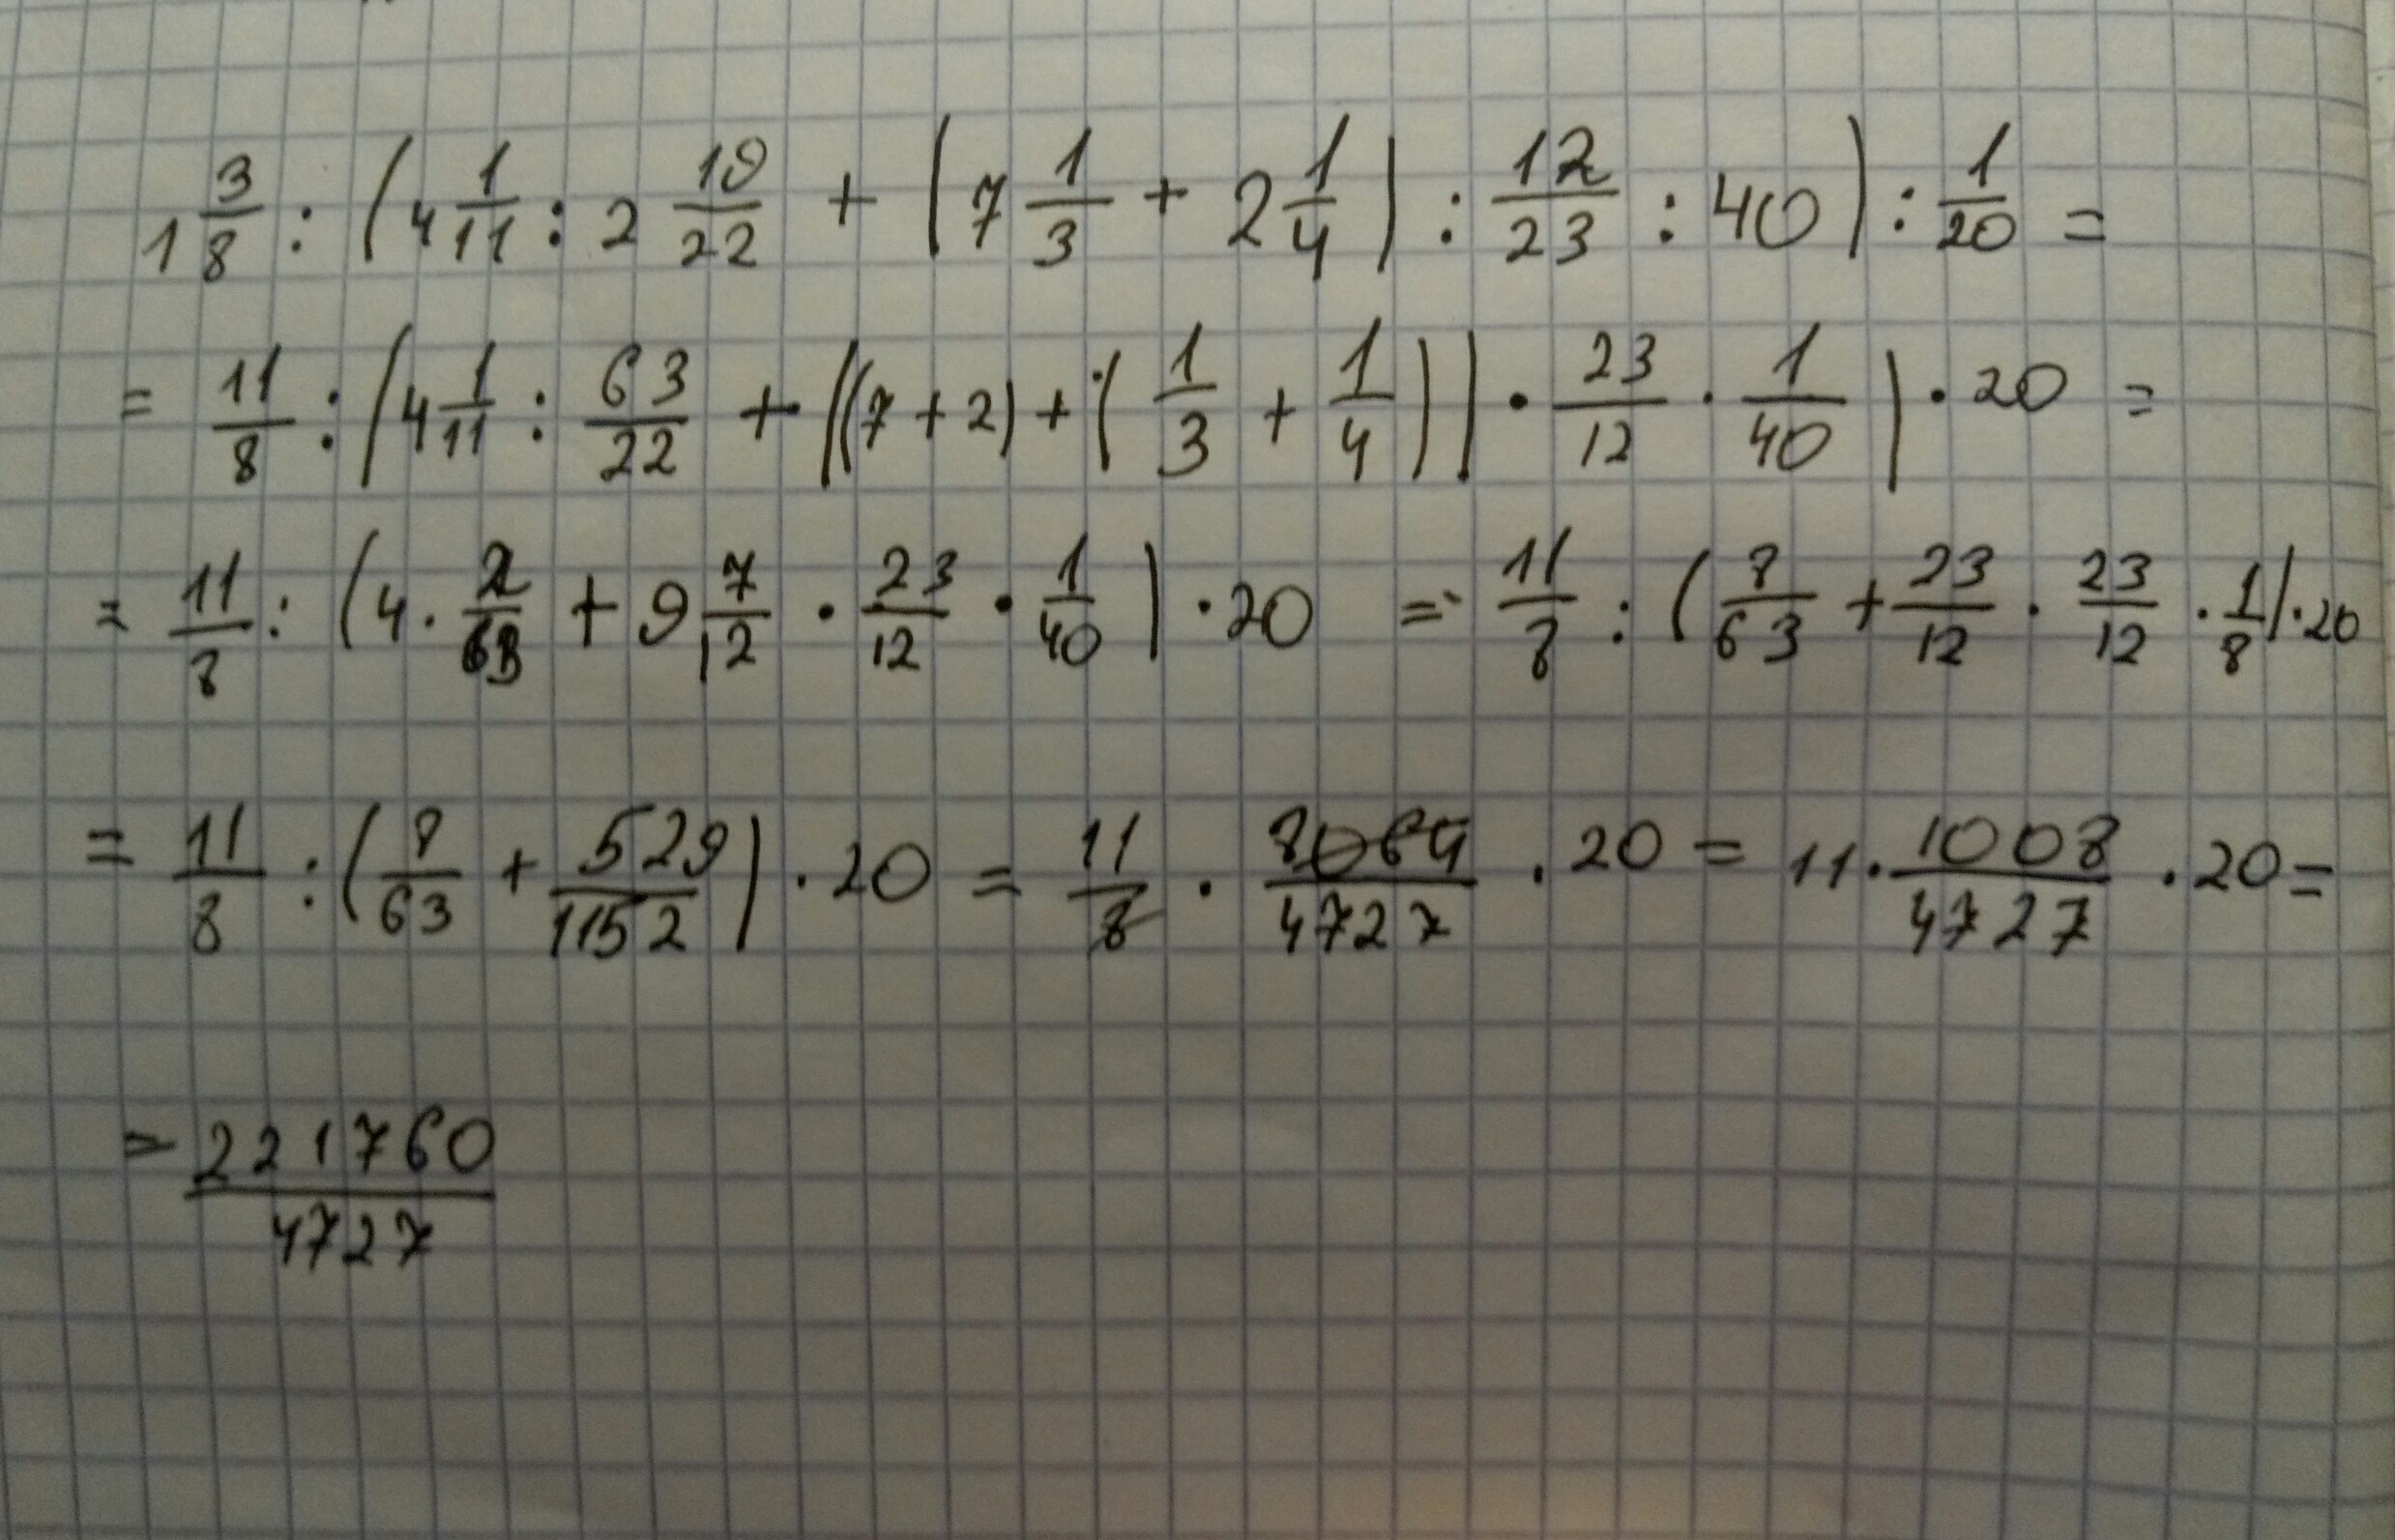 1 3/8 : (4 1/11 : 2 19/22 + (7 1/3 + 2 1/4) : 12/23 : 40) : 1/20 =
= 11/8 : (4 1/11 : 63/22 + ((7 + 2) + (1/3 + 1/4)) · 23/12 · 1/40) · 20 =
= 11/8 : (4 · 2/63 + 9 7/12 · 23/12 · 1/40) · 20 = 11/8 : (8/63 + 23/12 · 23/12 · 1/8) · 20
= 11/8 : (8/63 + 529/1152) · 20 = 11/8 · 8064/4727 · 20 = 11 · 1008/4727 · 20 =
= 221760/4727